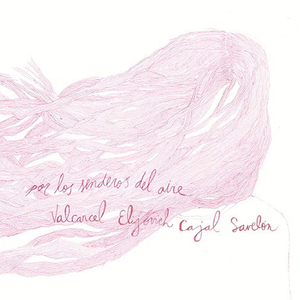 por los senderos del aire
Valcarcel Elijovich Cajal Savelon